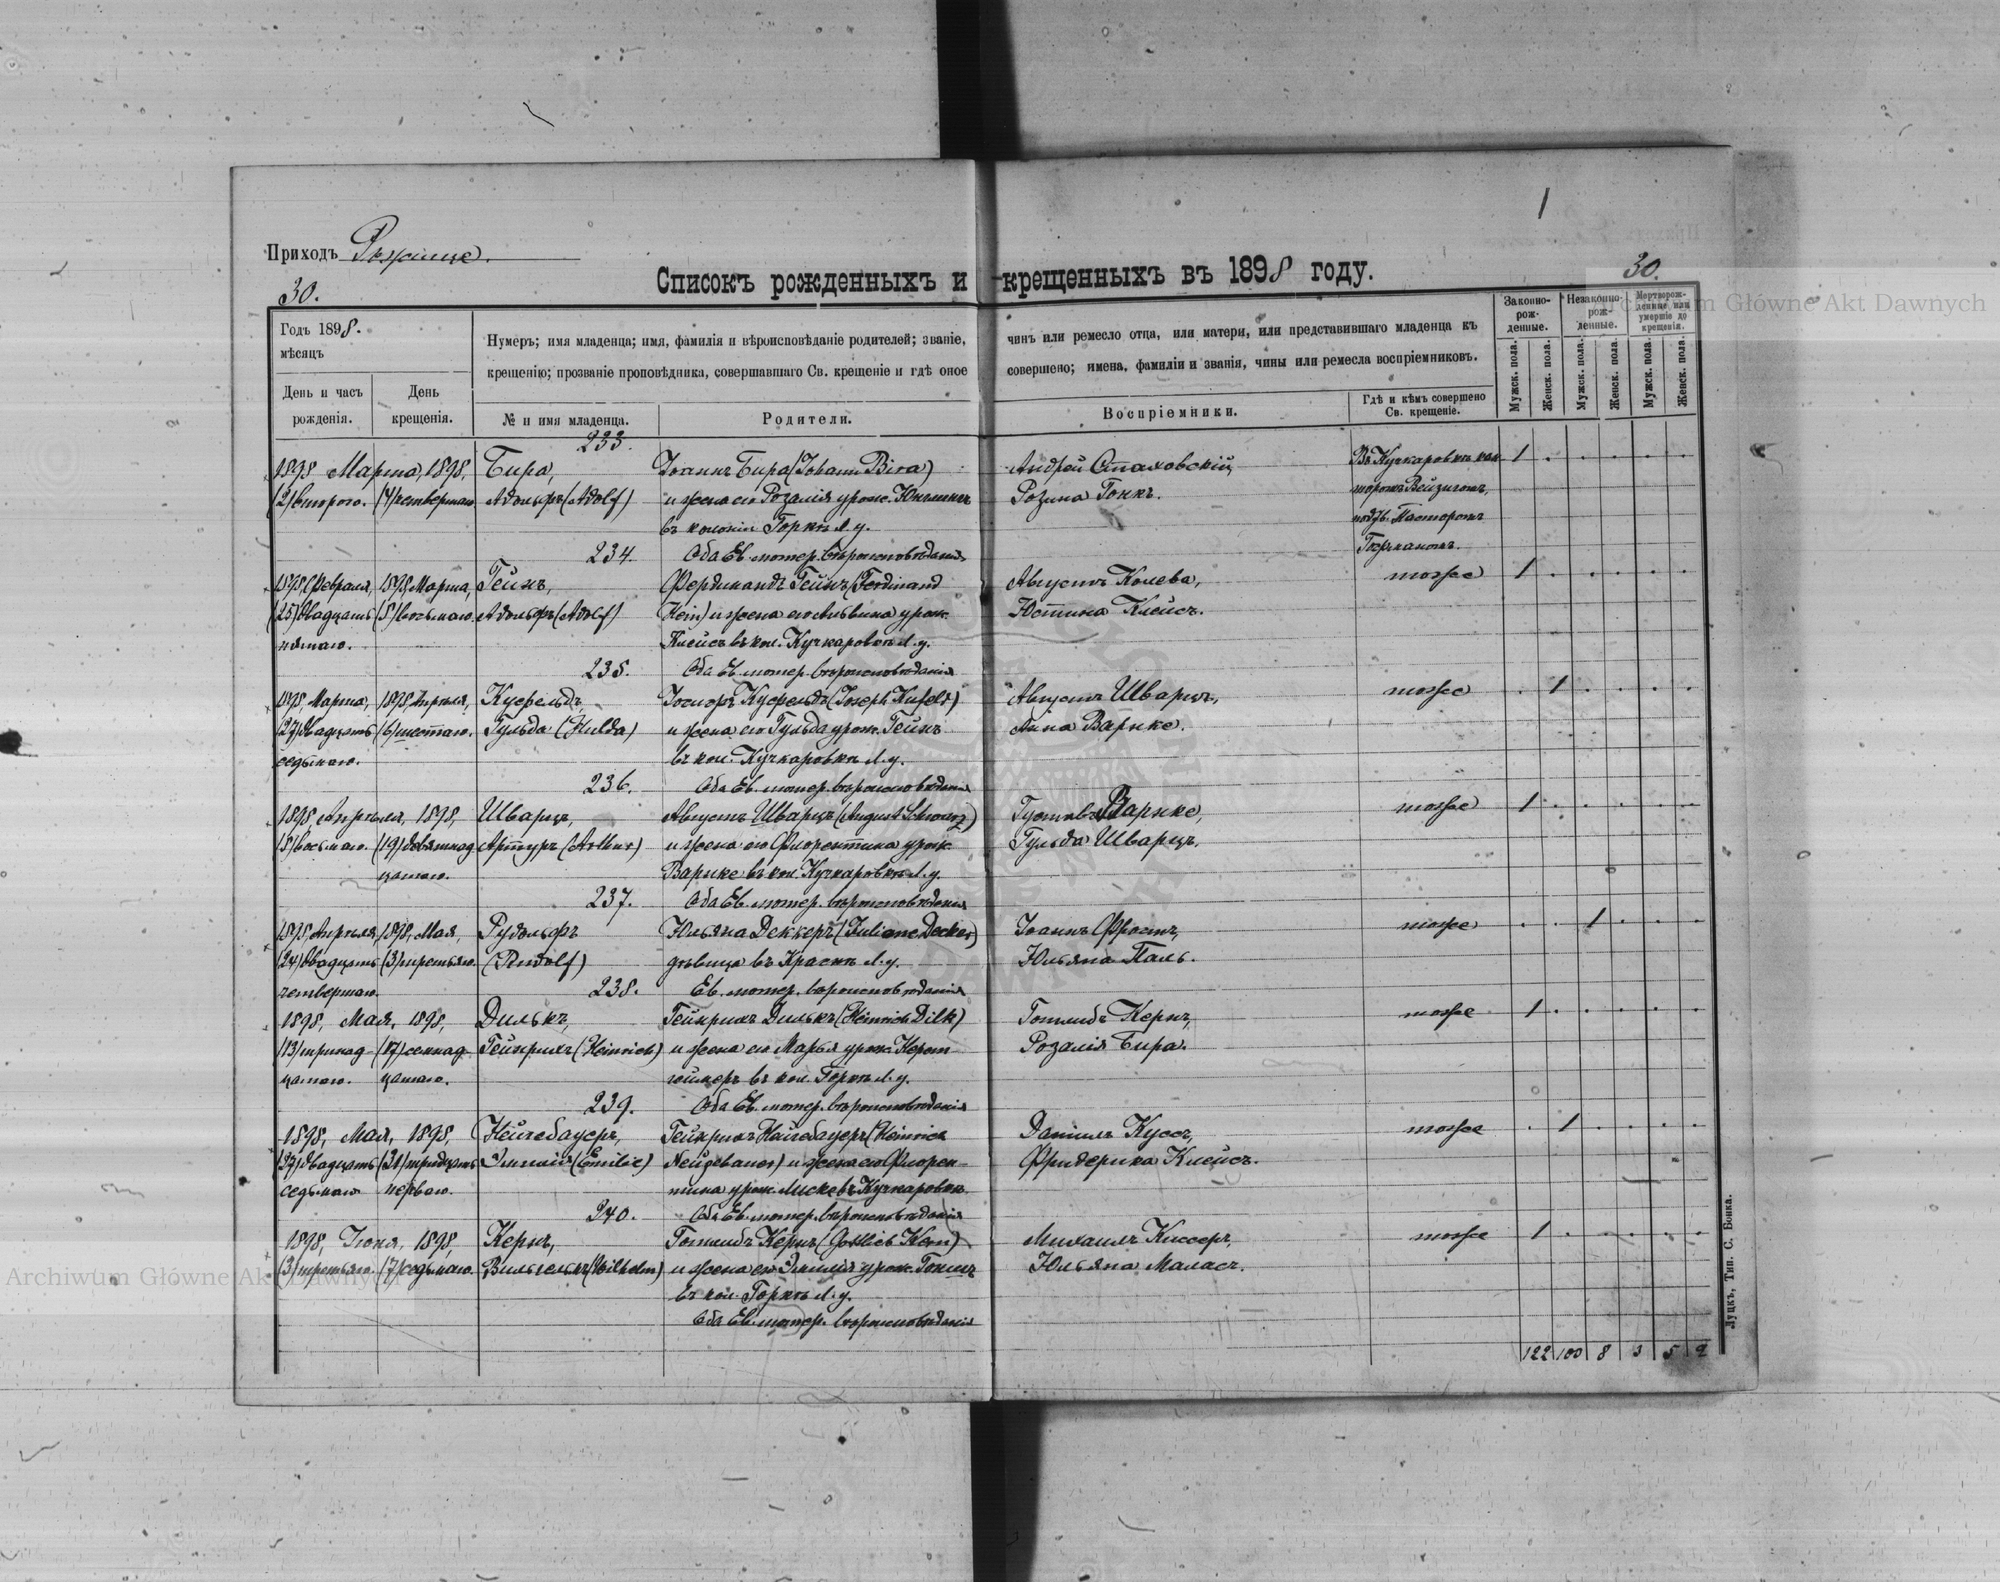 Приходъ Рожище.
Списокъ рожденныхъ и крещенныхъ въ 1898 году.
30.
30.
1
Годъ 1898.
мѣсяцъ
День и часъ
рожденія.
День
крещенія.
Нумеръ; имя младенца; имя, фамилія и вѣроисповѣданіе родителей; званіе,
крещенію; прозваніе проповѣдника, совершавшаго Св. крещеніе и гдѣ оное
№ и имя младенца.
Родители.
чинъ или ремесло отца, или матери, или представившаго младенца къ
совершено; имена, фамиліи и званія, чины или ремесла воспріемниковъ.
Воспріемники.
Гдѣ и кѣмъ совершено
Св. крещеніе.
Законно-
рож-
денные.
Незаконно-
рож-
денные.
Мертворож-
денные или
умершіе до
крещенія.
Мужск. пола.
Женск. пола.
Мужск. пола.
Женск. пола.
Мужск. пола.
Женск. пола.
233.
1898 Марта, 1898,
(2) втораго. (4) четвертаго
Бира,
Адольфъ (Adolf)
Іоаннъ Бира (Johann Bira)
и жена его Розалія урож.
въ колоніи Горкѣ Л. у.
Оба Ев. лютер. вѣроисповѣданія
Андрей Стаховскій,
Розина Гонкъ.
Въ Кучкаровкѣ кан-
торомъ Вейзигомъ,
подтв. Пасторомъ
1
234.
1898, Февраля, 1898, Марта,
(25) двадцать (8) восьмаго.
пятаго.
Гейнъ,
Адольфъ (Adolf)
Фердинандъ Гейнъ (Ferdinand
Hein) и жена его Альвина урож.
Клейсъ въ кол. Кучкаровкѣ Л. у.
Оба Ев. лютер. вѣроисповѣданія
Августъ Колева,
Юстина Клейсъ.
тоже
1
235.
1898, Марта, 1898, Апрѣля,
(27) двадцать (6) шестаго.
седьмаго.
Куфельдъ,
Гульда (Hulda)
Іосифъ Куфельдъ (Joseph Kufeld)
и жена его Гульда урож. Гейнъ
въ кол. Кучкаровкѣ Л. у.
Оба Ев. лютер. вѣроисповѣданія
Августъ Шварцъ,
Анна Варнке.
тоже
1
236.
1898, Апрѣля, 1898,
(8) восьмаго. (19) девятнад-
цатаго.
Шварцъ,
Артуръ (Arthur)
Августъ Шварцъ (August Schwarz)
и жена его Флорентина урож.
Варнке въ кол. Кучкаровкѣ Л. у.
Оба Ев. лютер. вѣроисповѣданія
Густавъ Варнке,
Гульда Шварцъ.
тоже
1
237.
1898, Апрѣля, 1898, Мая,
(24) двадцать (3) третьяго.
четвертаго.
Рудольфъ
(Rudolf)
Юльяна Деккеръ (Juliane Decker)
дѣвица въ Краскѣ Л. у.
Ев. лютер. вѣроисповѣданія
Іоаннъ Фростъ,
Юльяна Паль.
тоже
1
238.
1898, Мая, 1898,
(13) тринад- (17) семнад-
цатаго. цатаго.
Дилькъ,
Гейнрихъ (Heinrich)
Гейнрихъ Дилькъ (Heinrich Dilk)
и жена его Марья урож. Керст-
геймеръ въ кол. Горкѣ Л. у.
Оба Ев. лютер. вѣроисповѣданія
Готлибъ Кернъ,
Розалія Бира.
тоже
1
239.
1898, Мая, 1898,
(27) двадцать (31) тридцать
седьмаго первого.
Нейгебауеръ,
Эмилія (Emilie)
Гейнрихъ Нейгебауеръ (Heinrich
Neugebauer) и жена его Флорен-
тина урож. Лиске въ Кучкаровкѣ
Оба Ев. лютер. вѣроисповѣданія
Даніилъ Куссъ,
Фридерика Клейсъ.
тоже
1
240.
1898, Іюня, 1898,
(3) третьяго. (7) седьмаго.
Кернъ,
Вильгельмъ (Wilhelm)
Готлибъ Кернъ (Gottlieb Kern)
и жена его Эмилія урож.
въ кол. Горкѣ Л. у.
Оба Ев. лютер. вѣроисповѣданія
Михаилъ Киссеръ,
Юльяна Маласъ.
тоже
1
122 100 8 3 5 2
Луцкъ, Тип. С. Бонка.
Archiwum Główne Akt Dawnych
Archiwum Główne Akt Dawnych